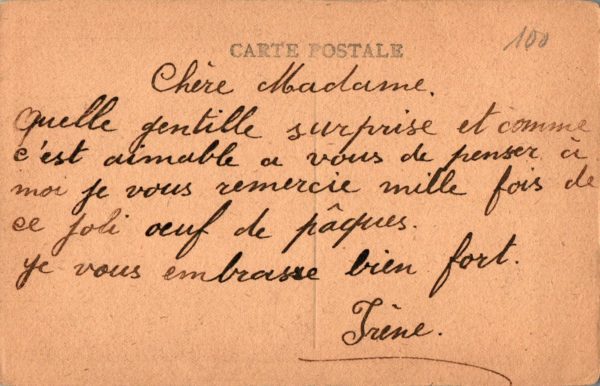 CARTE POSTALE
100
Chère Madame.
Quelle gentille surprise et comme
c'est aimable a vous de penser à
moi je vous remercie mille fois de
ce joli œuf de pâques.
Je vous embrasse bien fort.
Irène.